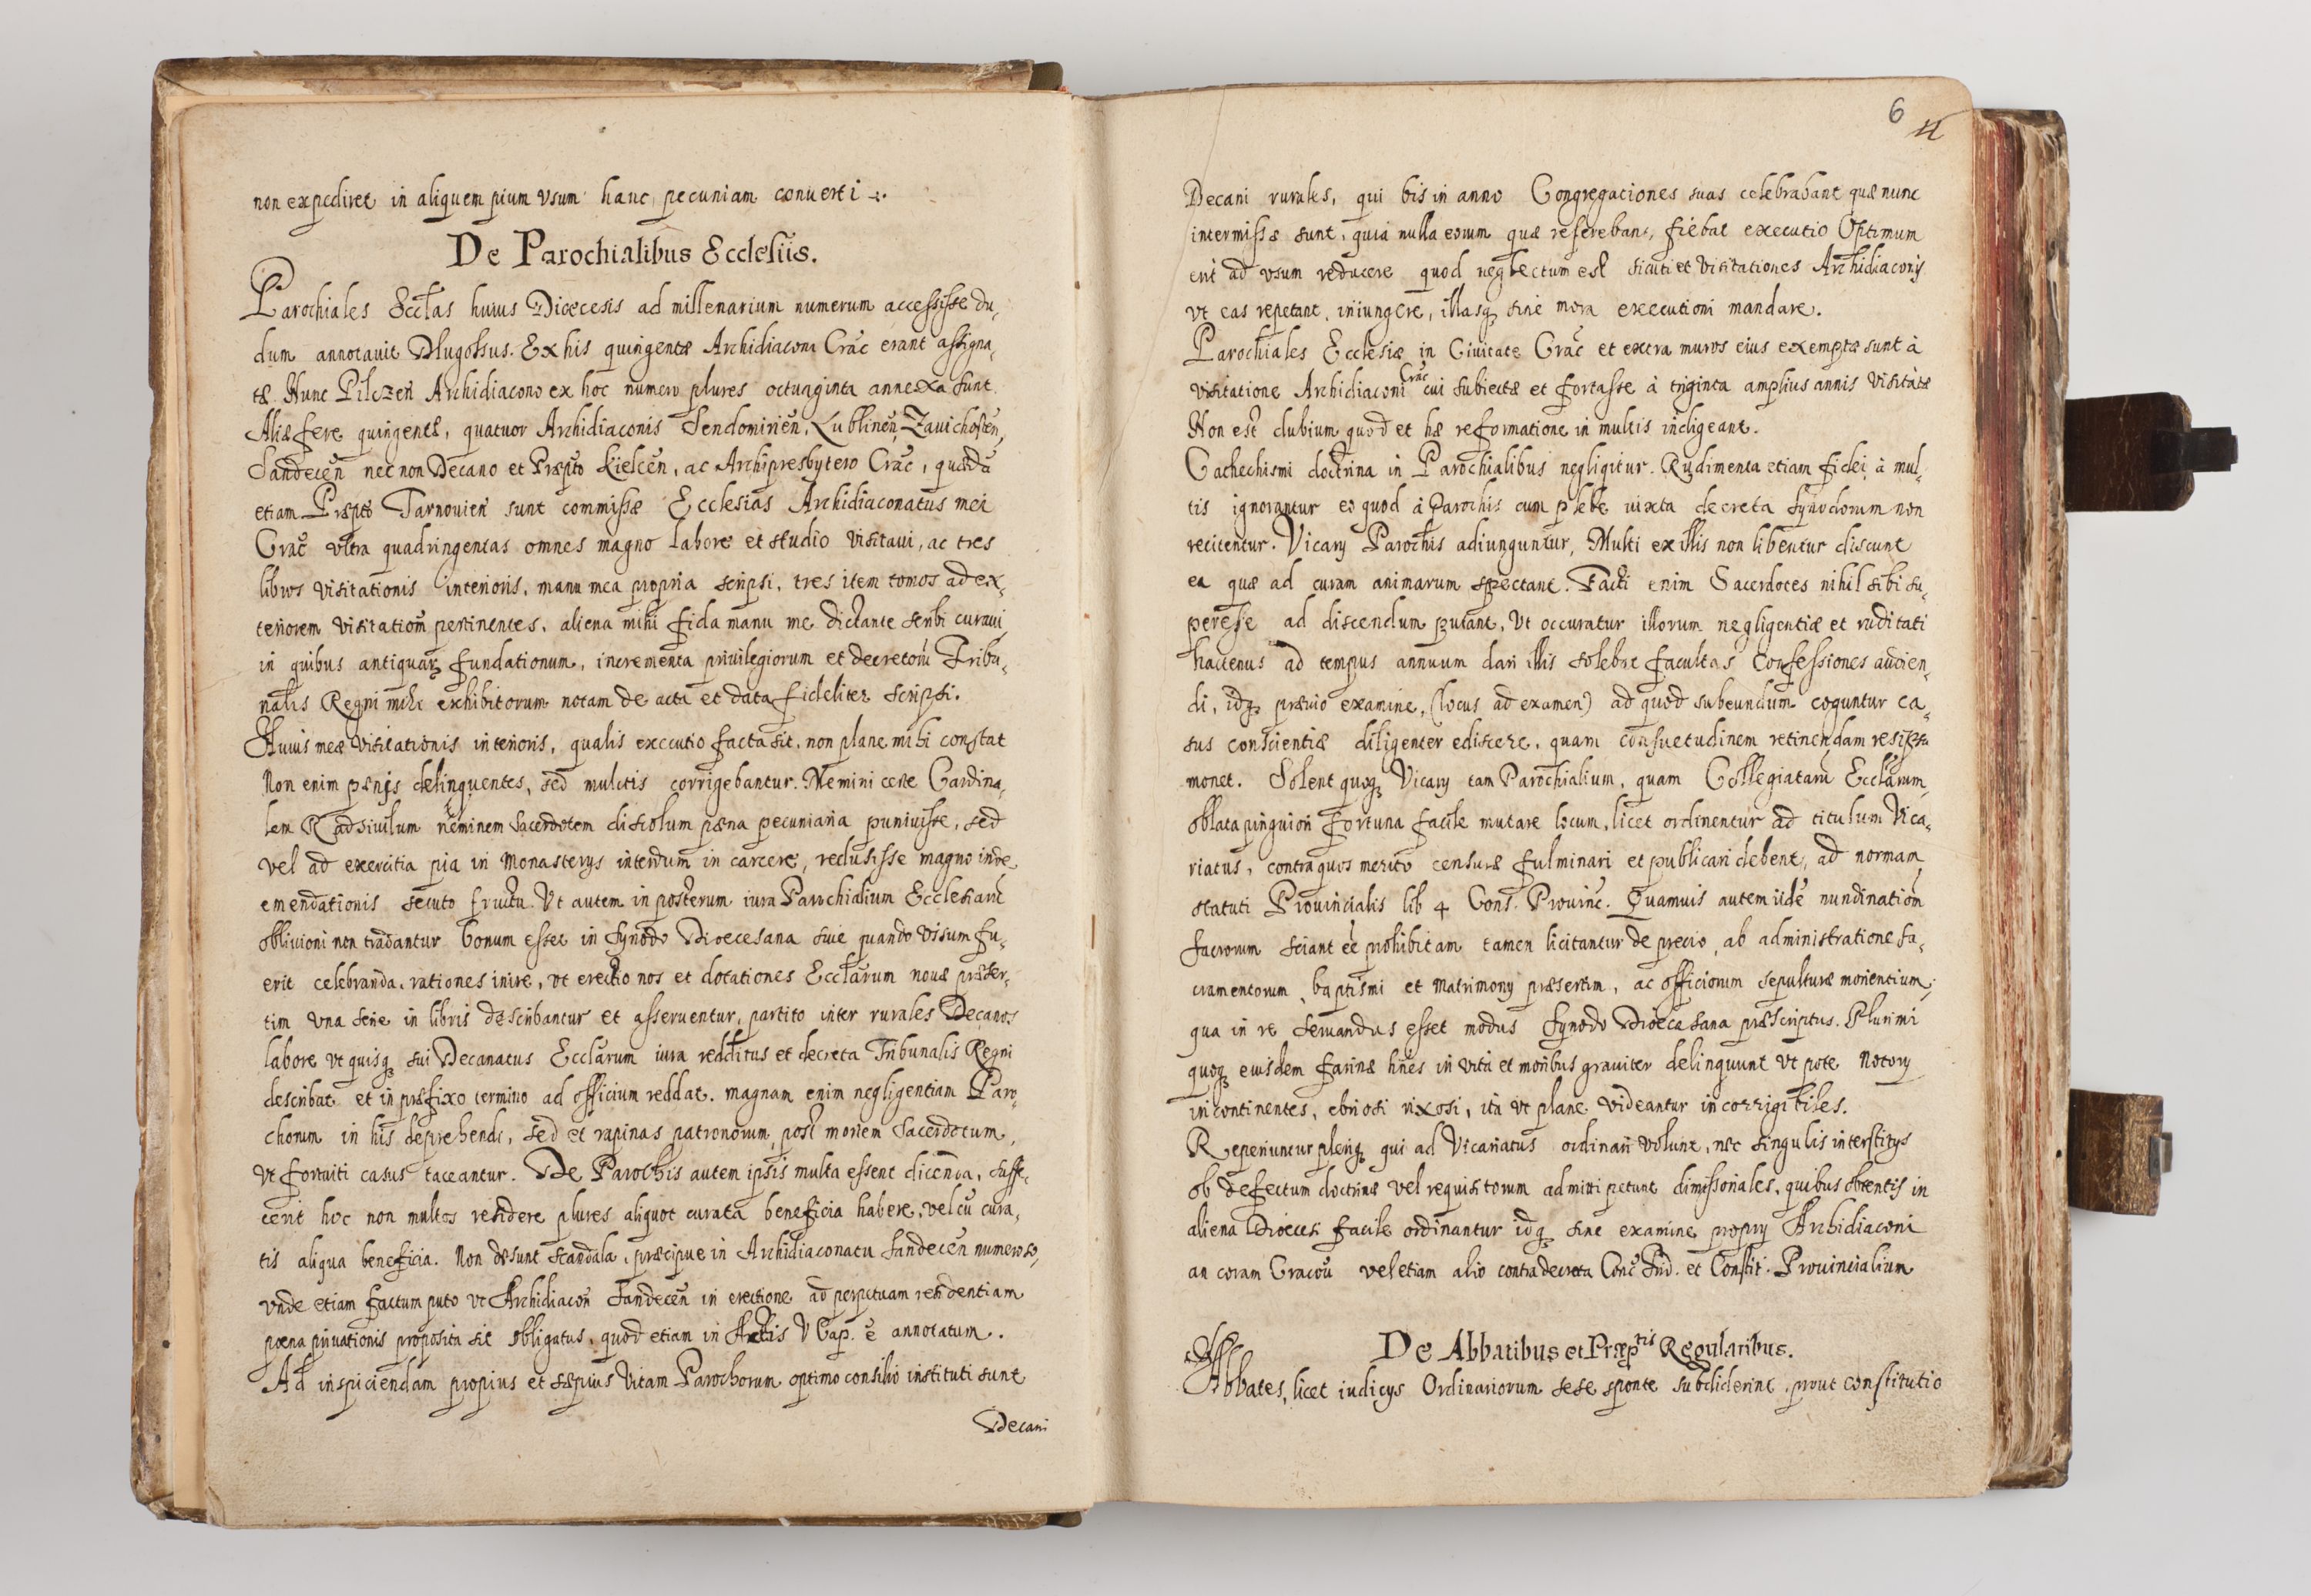 non expediret in aliquem pium vsum hanc pecuniam conuerti
De Parochialibus Ecclesiis.
Parochiales Eccl̃as huius Diœcesis ad millenarium numerum accessisse du,
dum annotauit Dlugossus. Ex his quingentæ Archidiacono Crac̃ erant assigna,
tæ. Nunc Pilczen̄ Archidiacono ex hoc numero plures octuaginta annexa sunt.
Aliæ fere quingentæ, quatuor Archidiaconis Sendomirien̄, Lublinen̄, Zauichosten̄,
Sandecen̄ nec non Decano et Præpto Kielcen̄, ac Archipresbytero Crac̃, quædã
etiam Præpto Tarnouien̄ sunt commissæ Ecclesias Archidiaconatus mei
Crac̃ vltra quadringentas omnes magno labore et studio visitaui, ac tres
libros visitationis interioris, manu mea propria scripsi, tres item tomos ad ex,
teriorem visitationẽ pertinentes, aliena mihi fida manu me dictante scribi curaui
in quibus antiquarꝫ fundationum, incrementa priuilegiorum et decretorũ Tribu,
nalis Regni mihi exhibitorum notam de acta et data fideliter scripsi.
Huius meæ Visitationis interioris, qualis executio facta sit, non plane mihi constat
Non enim pœnis delinquentes, sed mulctis corrigebantur. Memini certe Cardina,
lem Radsiuilum neminem Sacerdotem discolum pœna pecuniaria puniuisse, sed
vel ad exercitia pia in Monasterys interdum in carcere, reclusisse magno inde
emendationis secuto fructu. Vt autem in posterum iura Parochialium Ecclesiarũ
obliuioni non tradantur bonum esset in Synodo Diœcesana siue quando visum fu,
erit celebranda, rationes inire, vt erectionos et dotationes Eccl̃arum nouæ præser,
tim vna serie in libris describantur et asseruentur, partito inter rurales Decanos
labore vt quisqꝫ sui Decanatus Eccl̃arum iura redditus et decreta Tribunalis Regni
describat et in præfixo termino ad officium reddat. magnam enim negligentiam Paro,
chorum in his deprehendi, sed et rapinas patronorum, post mortem Sacerdotum,
vt fortuiti casus taceantur. De Parochis autem ipsis multa essent dicenda, suffe,
cerit hoc non multos residere plures aliquot curata beneficia habere, vel cũ cura,
tis aliqua beneficia. Non desunt scandala, præcipue in Archidiaconatu Sandecen̄ numeroso,
vnde etiam factum puto vt Archidiacon̄ Sandecen̄ in erectione ad perpetuam residentiam
pœna priuationis proposita sit obligatus, quod etiam in Actis V Cap. ẽ annotatum.
Ad inspiciendam propius et sæpius vitam Parochorum optimo consilio instituti sunt
Decani
6
Decani rurales, qui bis in anno Congregationes suas celebrabant quæ nunc
intermissæ sunt, quia nulla eorum quæ referebant, fiebat executio Optimum
erit ad vsum reducere quod neglectum est sicuti et Visitationes Archidiaconis
vt eas repetant, iniungere, illasqꝫ sine mora executioni mandare.
Parochiales Ecclesiæ in Ciuitate Crac̃ et extra muros eius exemptæ sunt à
visitatione Archidiaconi Crac̃ cui subiectæ et fortasse à triginta amplius annis visitatæ
Non est dubium quod et hæ reformatione in multis indigeant.
Cathechismi doctrina in Parochialibus negligitur. Rudimenta etiam fidei à mul,
tis ignorantur eo quod à Parochis cum plebe iuxta decreta Synodorum non
recitentur. Vicary Parochis adiunguntur, Multi ex illis non libenter discunt
ea quæ ad curam animarum spectant. Facti enim Sacerdotes nihil sibi su,
peresse ad discendum putant, Vt occuratur illorum negligentiæ et ruditati
hactenus ad tempus annuum dari illis solebat facultas Confessiones audien,
di, idqꝫ præuio examine, (locus ad examen) ad quod subeundum coguntur ca,
sus conscientiæ diligenter ediscere, quam consuetudinem retinendam res ipsa
monet. Solent quoqꝫ Vicary tam Parochialium, quam Collegiatarũ Eccl̃arum,
oblata pinguiori fortuna facile mutare locum, licet ordinentur ad titulum Vica,
riatus, contra quos merito censuræ fulminari et publicari debent, ad normam
statuti Prouincialis lib 4 Cons. Prouinc̃. Quamuis autem iidẽ nundinationẽ
sacrorum sciant eẽ prohibitam tamen licitantur de precio, ab administratione sa,
cramentorum, baptismi et Matrimony præsertim, ac officiorum sepulturæ morientium;
qua in re seruandus esset modus Synodo Diœcesana præscriptus. Plurimi
quoqꝫ eiusdem farinæ hñes in vita et moribus grauiter delinquunt vt pote Notory
incontinentes, ebriosi rixosi, ita vt plane videantur incorrigibiles.
Reperiuntur pleriqꝫ qui ad Vicariatus ordinari volunt, nec singulis interstitys
ob defectum doctrinæ vel requisitorum admitti petunt dimissoriales, quibus obtentis in
aliena Diœcesi facile ordinantur idqꝫ sine examine propry Archidiaconi
an coram Cracoũ vel etiam alio contra decreta Conc̃ Trid. et Constit. Prouincialium
De Abbatibus et Præptis Regularibus.
Abbates, licet iudicys Ordinariorum sese sponte subdiderint, prout constitutio